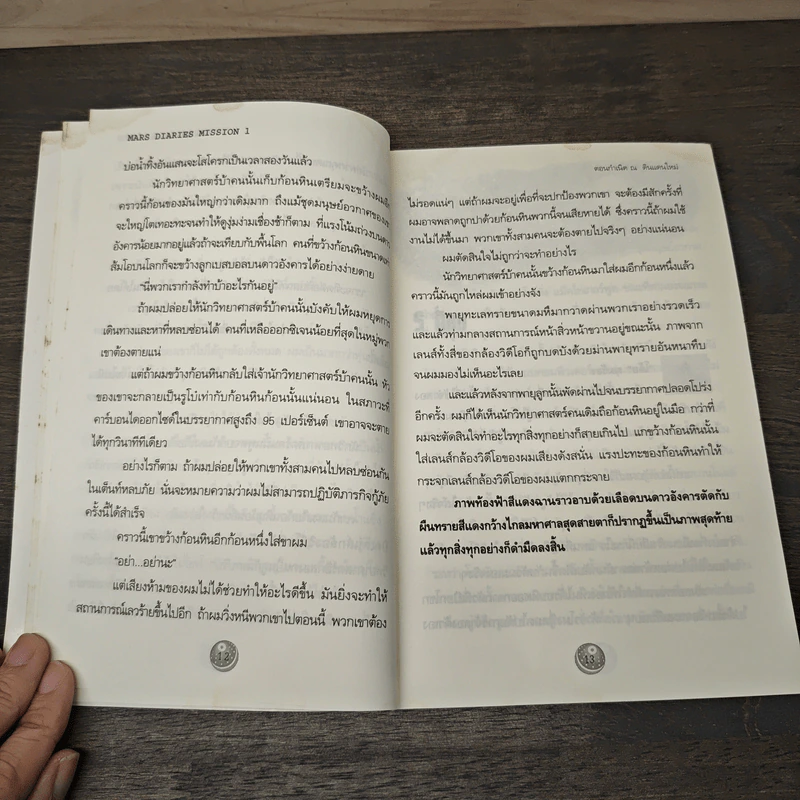 MARS DIARIES MISSION 1
บ่อน้ำทิ้งอันแสนจะโสโครกเป็นเวลาสองวันแล้ว
นักวิทยาศาสตร์บ้าคนนั้นเก็บก้อนหินเตรียมจะขว้างผมอีก
คราวนี้ก้อนของมันใหญ่กว่าเดิมมาก ถึงแม้ชุดมนุษย์อวกาศของเขา
จะใหญ่โตเทอะทะจนทำให้ดูงุ่มง่ามเชื่องช้าก็ตาม ที่แรงโน้มถ่วงบนดาว
อังคารน้อยมากอยู่แล้วถ้าจะเทียบกับพื้นโลก คนที่ขว้างก้อนหินขนาดเท่า
ส้มโอบนโลกก็จะขว้างลูกเบสบอลบนดาวอังคารได้อย่างง่ายดาย
“นี่พวกเรากำลังทำบ้าอะไรกันอยู่”
ถ้าผมปล่อยให้นักวิทยาศาสตร์บ้าคนนั้นบังคับให้ผมหยุดการ
เดินทางและหาที่หลบซ่อนได้ คนที่เหลือออกซิเจนน้อยที่สุดในหมู่พวก
เขาต้องตายแน่
แต่ถ้าผมขว้างก้อนหินกลับใส่เจ้านักวิทยาศาสตร์บ้าคนนั้น หัว
ของเขาจะกลายเป็นรูโบ๋เท่ากับก้อนหินก้อนนั้นแน่นอน ในสภาวะที่
คาร์บอนไดออกไซด์ในบรรยากาศสูงถึง 95 เปอร์เซ็นต์ เขาอาจจะตาย
ได้ทุกวินาทีทีเดียว
อย่างไรก็ตาม ถ้าผมปล่อยให้พวกเขาทั้งสามคนไปหลบซ่อนกัน
ในเต็นท์หลบภัย นั่นจะหมายความว่าผมไม่สามารถปฏิบัติภารกิจกู้ภัย
ครั้งนี้ได้สำเร็จ
คราวนี้เขาขว้างก้อนหินอีกก้อนหนึ่งใส่ขาผม
“อย่า...อย่านะ”
แต่เสียงห้ามของผมไม่ได้ช่วยทำให้อะไรดีขึ้น มันยิ่งจะทำให้
สถานการณ์เลวร้ายขึ้นไปอีก ถ้าผมวิ่งหนีพวกเขาไปตอนนี้ พวกเขาต้อง
12
ตอนกำเนิด ณ ดินแดนใหม่
ไม่รอดแน่ๆ แต่ถ้าผมจะอยู่เพื่อที่จะปกป้องพวกเขา จะต้องมีสักครั้งที่
ผมอาจพลาดถูกปาด้วยก้อนหินพวกนี้จนเสียหายได้ ซึ่งคราวนี้ถ้าผมใช้
งานไม่ได้ขึ้นมา พวกเขาทั้งสามคนจะต้องตายไปจริงๆ อย่างแน่นอน
ผมตัดสินใจไม่ถูกว่าจะทำอย่างไร
นักวิทยาศาสตร์บ้าคนนั้นขว้างก้อนหินมาใส่ผมอีกก้อนหนึ่งแล้ว
คราวนี้มันถูกไหล่ผมเข้าอย่างจัง
พายุทะเลทรายขนาดมหึมากวาดผ่านพวกเราอย่างรวดเร็ว
และแล้วท่ามกลางสถานการณ์หน้าสิ่วหน้าขวานอยู่ขณะนั้น ภาพจาก
เลนส์ทั้งสี่ของกล้องวิดีโอก็ถูกบดบังด้วยม่านพายุทรายอันหนาทึบ
จนผมมองไม่เห็นอะไรเลย
และแล้วหลังจากพายุลูกนั้นพัดผ่านไปจนบรรยากาศปลอดโปร่ง
อีกครั้ง ผมก็ได้เห็นนักวิทยาศาสตร์คนเดิมถือก้อนหินอยู่ในมือ กว่าที่
ผมจะตัดสินใจทำอะไรทุกสิ่งทุกอย่างก็สายเกินไป แกขว้างก้อนหินนั้น
ใส่เลนส์กล้องวิดีโอของผมเสียงดังสนั่น แรงปะทะของก้อนหินทำให้
กระจกเลนส์กล้องวิดีโอของผมแตกกระจาย
ภาพท้องฟ้าสีแดงฉานราวอาบด้วยเลือดบนดาวอังคารตัดกับ
ผืนทรายสีแดงกว้างไกลมหาศาลสุดสายตาก็ปรากฏขึ้นเป็นภาพสุดท้าย
แล้วทุกสิ่งทุกอย่างก็ดำมืดลงสิ้น
13